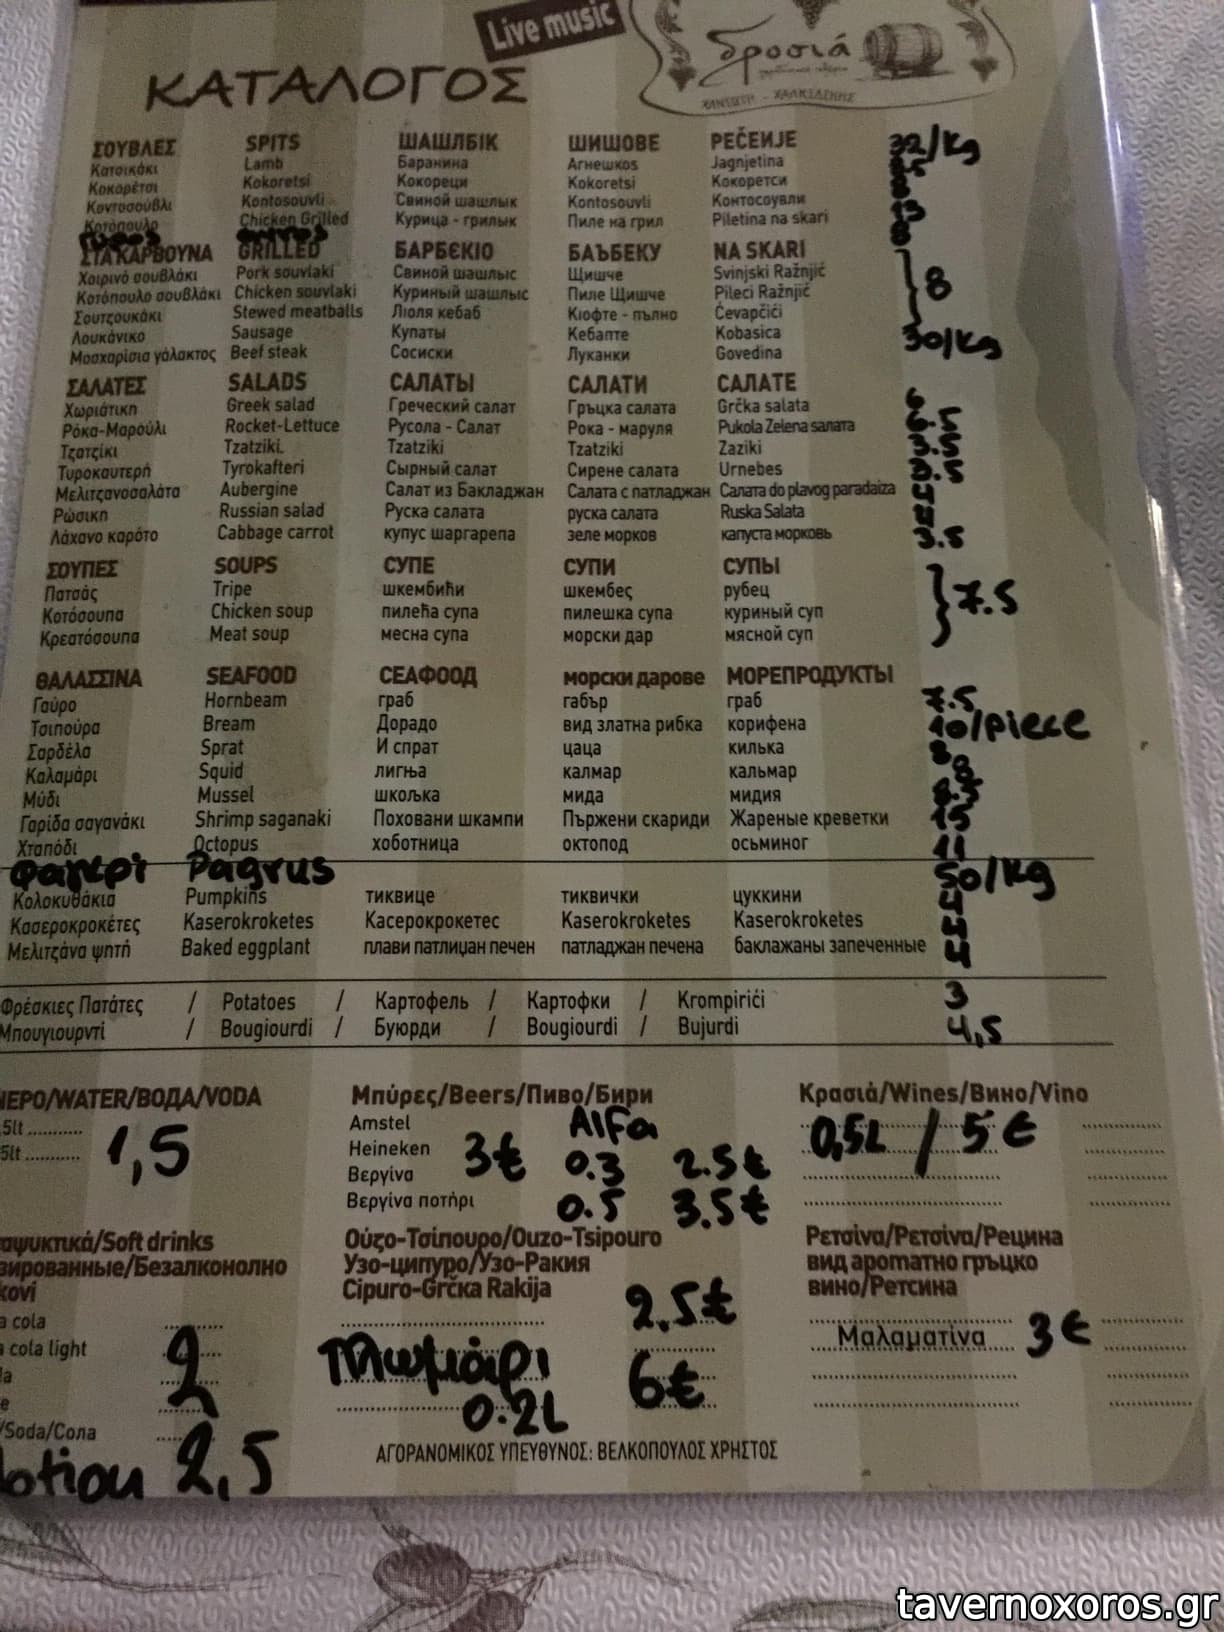 Live music
δροσιά
ΧΑΝΙΩΤΗ - ΧΑΛΚΙΔΙΚΗΣ
ΚΑΤΑΛΟΓΟΣ
ΣΟΥΒΛΕΣ SPITS ШАШЛБІК ШИШОВЕ PEČEИJE
Κατσικάκι Lamb Баранина Агнешкоs Jagnjetina 32/kg
Κοκορέτσι Kokoretsi Кокореци Kokoretsi Кокоретси
Κοντοσούβλι Kontosouvli Свиной шашлык Kontosouvli Контосоували
Κοτόπουλο Chicken Grilled Курица - грилык Пиле на грил Piletina na skari
ΣΤΑ ΚΑΡΒΟΥΝΑ GRILLED БАРБЄКІО БАЪБЕКУ NA SKARI
Χοιρινό σουβλάκι Pork souvlaki Свиной шашлыс Щишче Svinjski Ražnjić
Κοτόπουλο σουβλάκι Chicken souvlaki Куриный шашлыс Пиле Щишче Pileci Ražnjić 8
Σουτζουκάκι Stewed meatballs Люля кебаб Кюфте - пълно Ćevapčići
Λουκάνικο Sausage Купаты Кебапте Kobasica
Μοσχαρίσια γάλακτος Beef steak Сосиски Луканки Govedina 30/kg
ΣΑΛΑΤΕΣ SALADS САЛАТЫ САЛАТИ САЛАТЕ
Χωριάτικη Greek salad Греческий салат Гръцка салата Grčka salata 6
Ρόκα-Μαρούλι Rocket-Lettuce Русола - Салат Рока - маруля Pukola Zelena saлата 6.5
Τζατζίκι Tzatziki Tzatziki Tzatziki Zaziki 3.5
Τυροκαυτερή Tyrokafteri Сырный салат Сирене салата Urnebes 3.5
Μελιτζανοσαλάτα Aubergine Салат из Бакладжан Салата с патладжан Салата do plavog paradaiza 4
Ρώσικη Russian salad Руска салата руска салата Ruska Salata 4
Λάχανο καρότο Cabbage carrot купус шаргарепа зеле морков капуста морковь 3.5
ΣΟΥΠΕΣ SOUPS СУПЕ СУПИ СУПЫ
Πατσάς Tripe шкембићи шкембеς рубец
Κοτόσουπα Chicken soup пилећа супа пилешка супа куриный суп 7.5
Κρεατόσουπα Meat soup месна супа морски дар мясной суп
ΘΑΛΑΣΣΙΝΑ SEAFOOD СЕАФООД морски дарове МОРЕПРОДУКТЫ
Γαύρο Hornbeam граб габър граб 7.5
Τσιπούρα Bream Дорадо вид златна рибка корифена 10/piece
Σαρδέλα Sprat И спрат цаца килька 8
Καλαμάρι Squid лигња калмар кальмар 8
Μύδι Mussel шкољка мида мидия
Γαρίδα σαγανάκι Shrimp saganaki Поховани шкампи Пържени скариди Жареные креветки 15
Χταπόδι Octopus хоботница октопод осьминог 11
Φαγκρί Pagrus 50/kg
Κολοκυθάκια Pumpkins тиквице тиквички цуккини 4
Κασεροκροκέτες Kaserokroketes Касерокрокетес Kaserokroketes Kaserokroketes 4
Μελιτζάνα ψητή Baked eggplant плави патлиџан печен патладжан печена баклажаны запеченные 4
Φρέσκιες Πατάτες / Potatoes / Картофель / Картофки / Krompirići 3
Μπουγιουρντί / Bougiourdi / Буюрди / Bougiourdi / Bujurdi 4,5
ΝΕΡΟ/WATER/ВОДА/VODA Μπύρες/Beers/Пиво/Бири Κρασιά/Wines/Вино/Vino
5lt ........... 1,5 Amstel Alfa 0,5L / 5€
5lt ........... Heineken 3€ 0.3 2.5€
Βεργίνα
Βεργίνα ποτήρι 0.5 3.5€
αψυκτικά/Soft drinks Ούζο-Τσίπουρο/Ouzo-Tsipouro Ρετσίνα/Ρετσίνα/Рецина
зированные/Безалконолно Узо-ципуро/Узо-Ракия вид ароматно гръцко
kovi Cipuro-Grčka Rakija вино/Ретсина
a cola 2.5€ Μαλαματίνα 3€
cola light 2 Πλωμάρι 6€
0.2L
/Soda/Сола
otion 2,5
ΑΓΟΡΑΝΟΜΙΚΟΣ ΥΠΕΥΘΥΝΟΣ: ΒΕΛΚΟΠΟΥΛΟΣ ΧΡΗΣΤΟΣ
tavernoxoros.gr